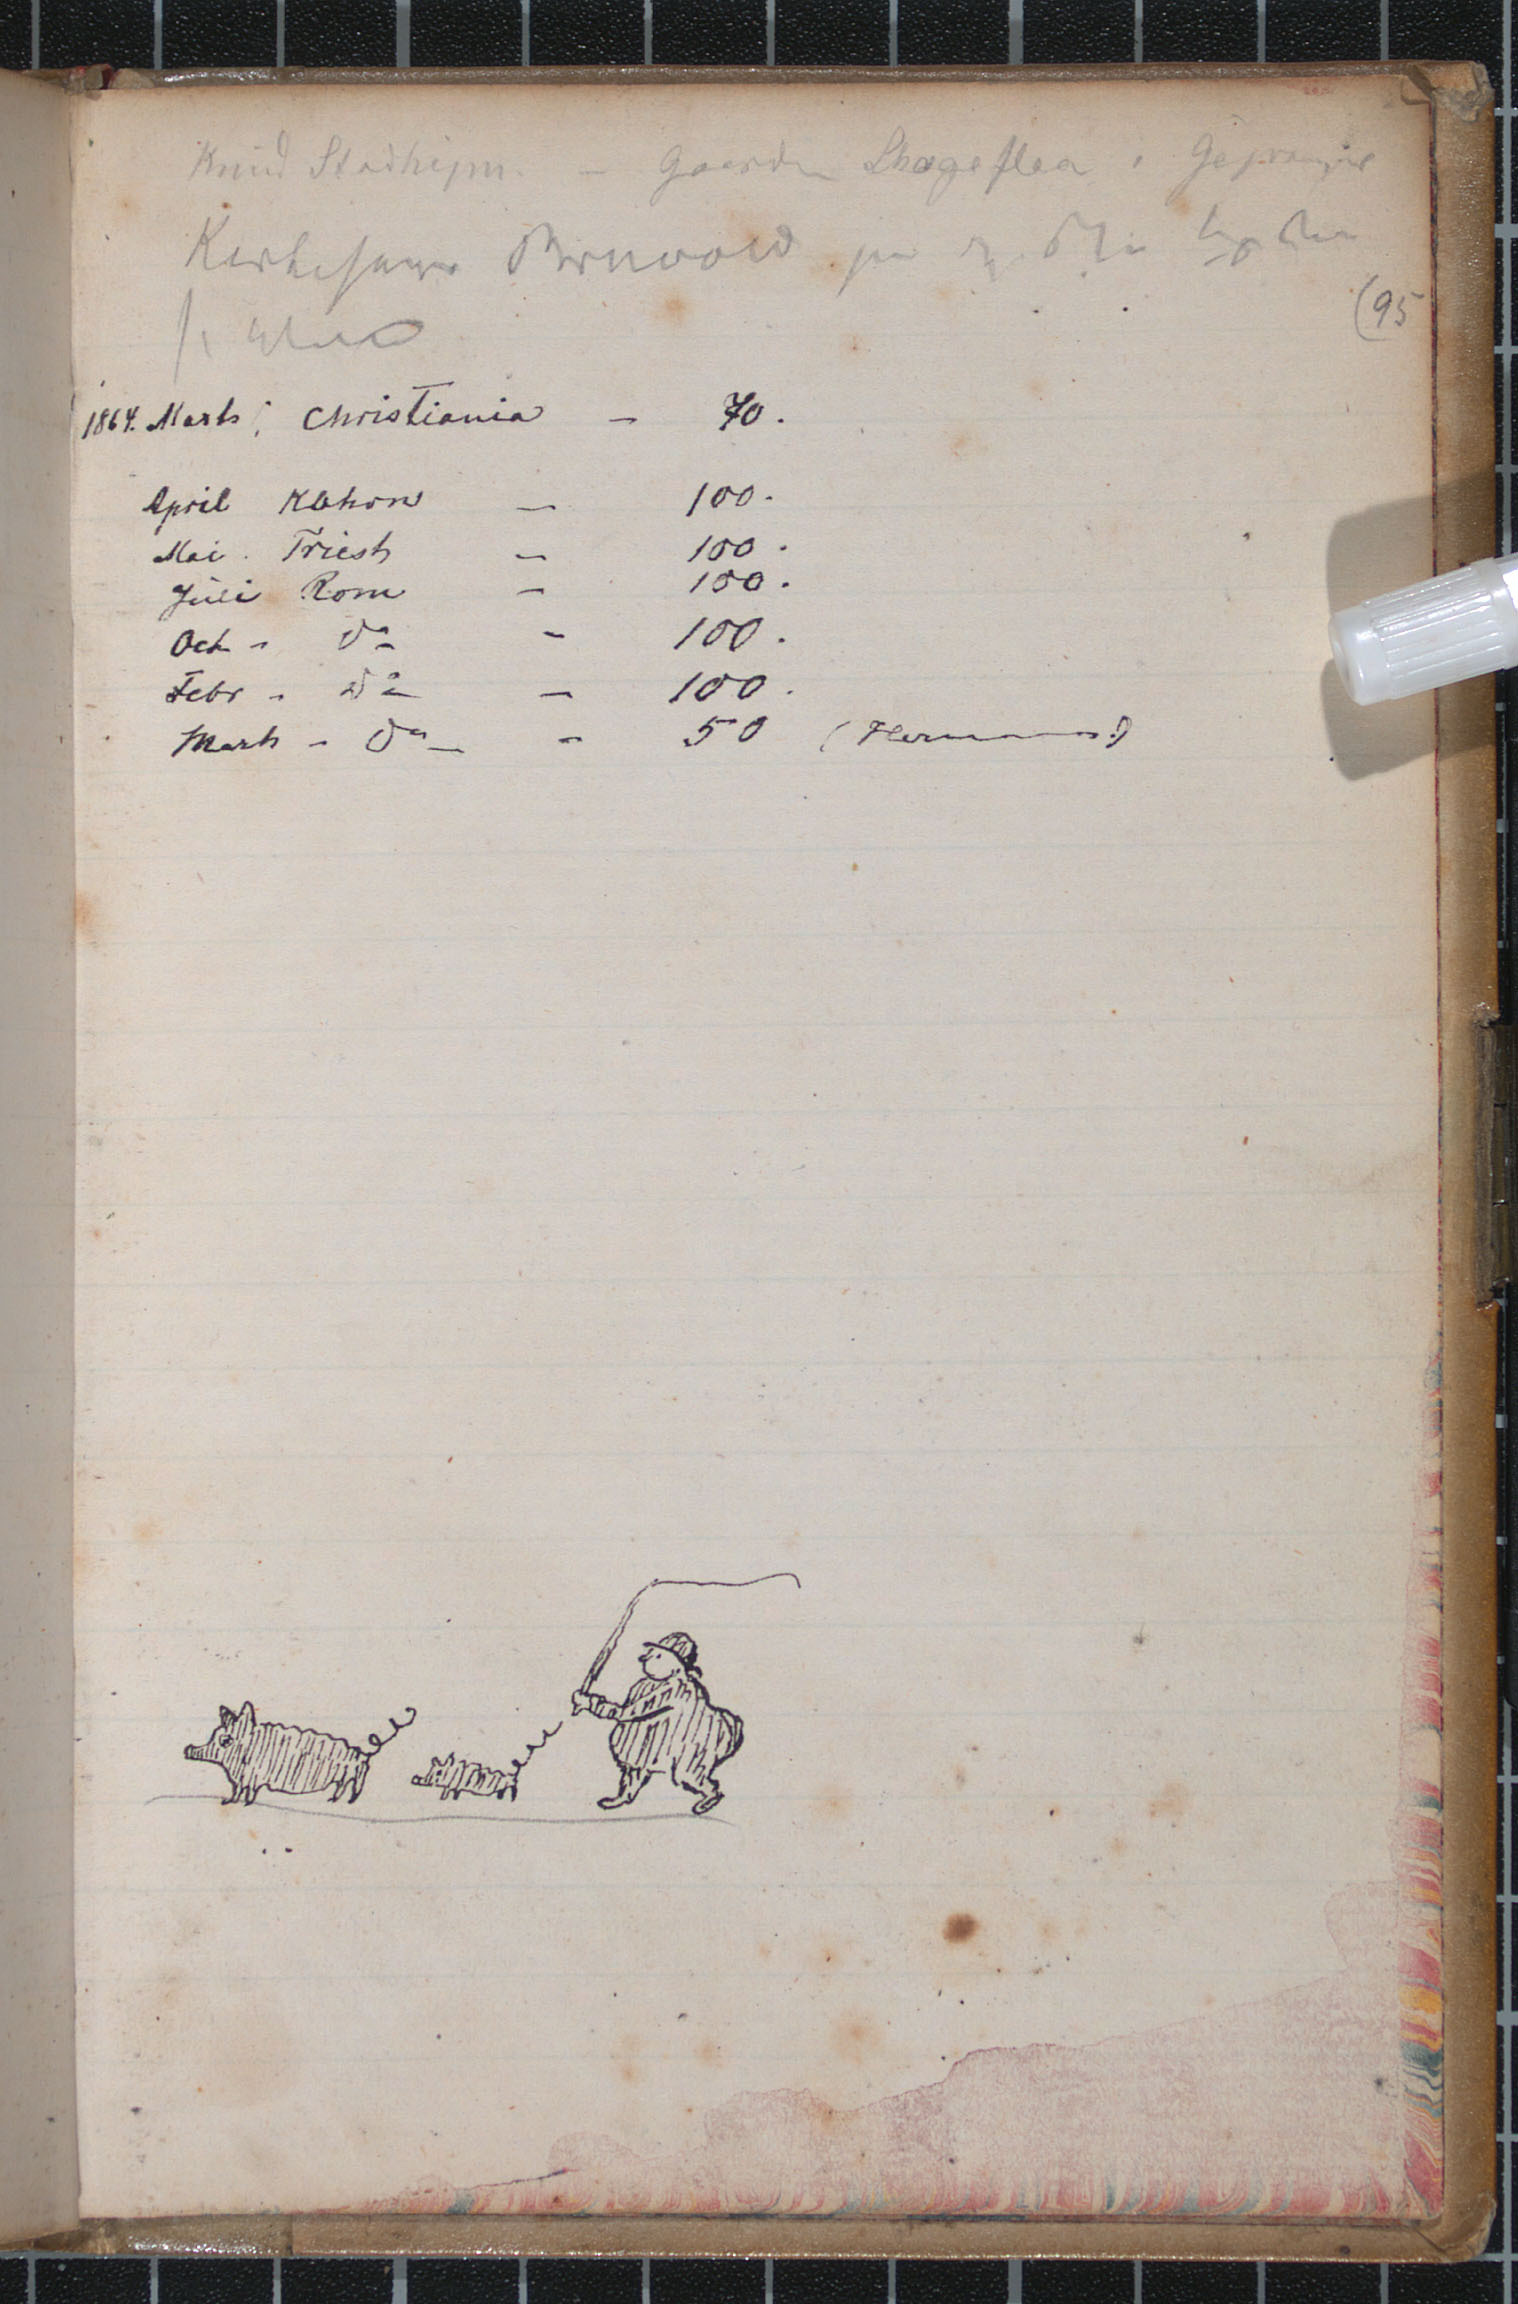 Knud Stadheim. – Gaarden Skageflaa i Gejranger
Kirkesanger
(95
1864. Marts; Christiania – 70.
April Kbhvn – 100.
Mai. Triest – 100.
Juli Rom – 100.
Oct – do – 100.
Febr – do – 100.
Marts – do – 50